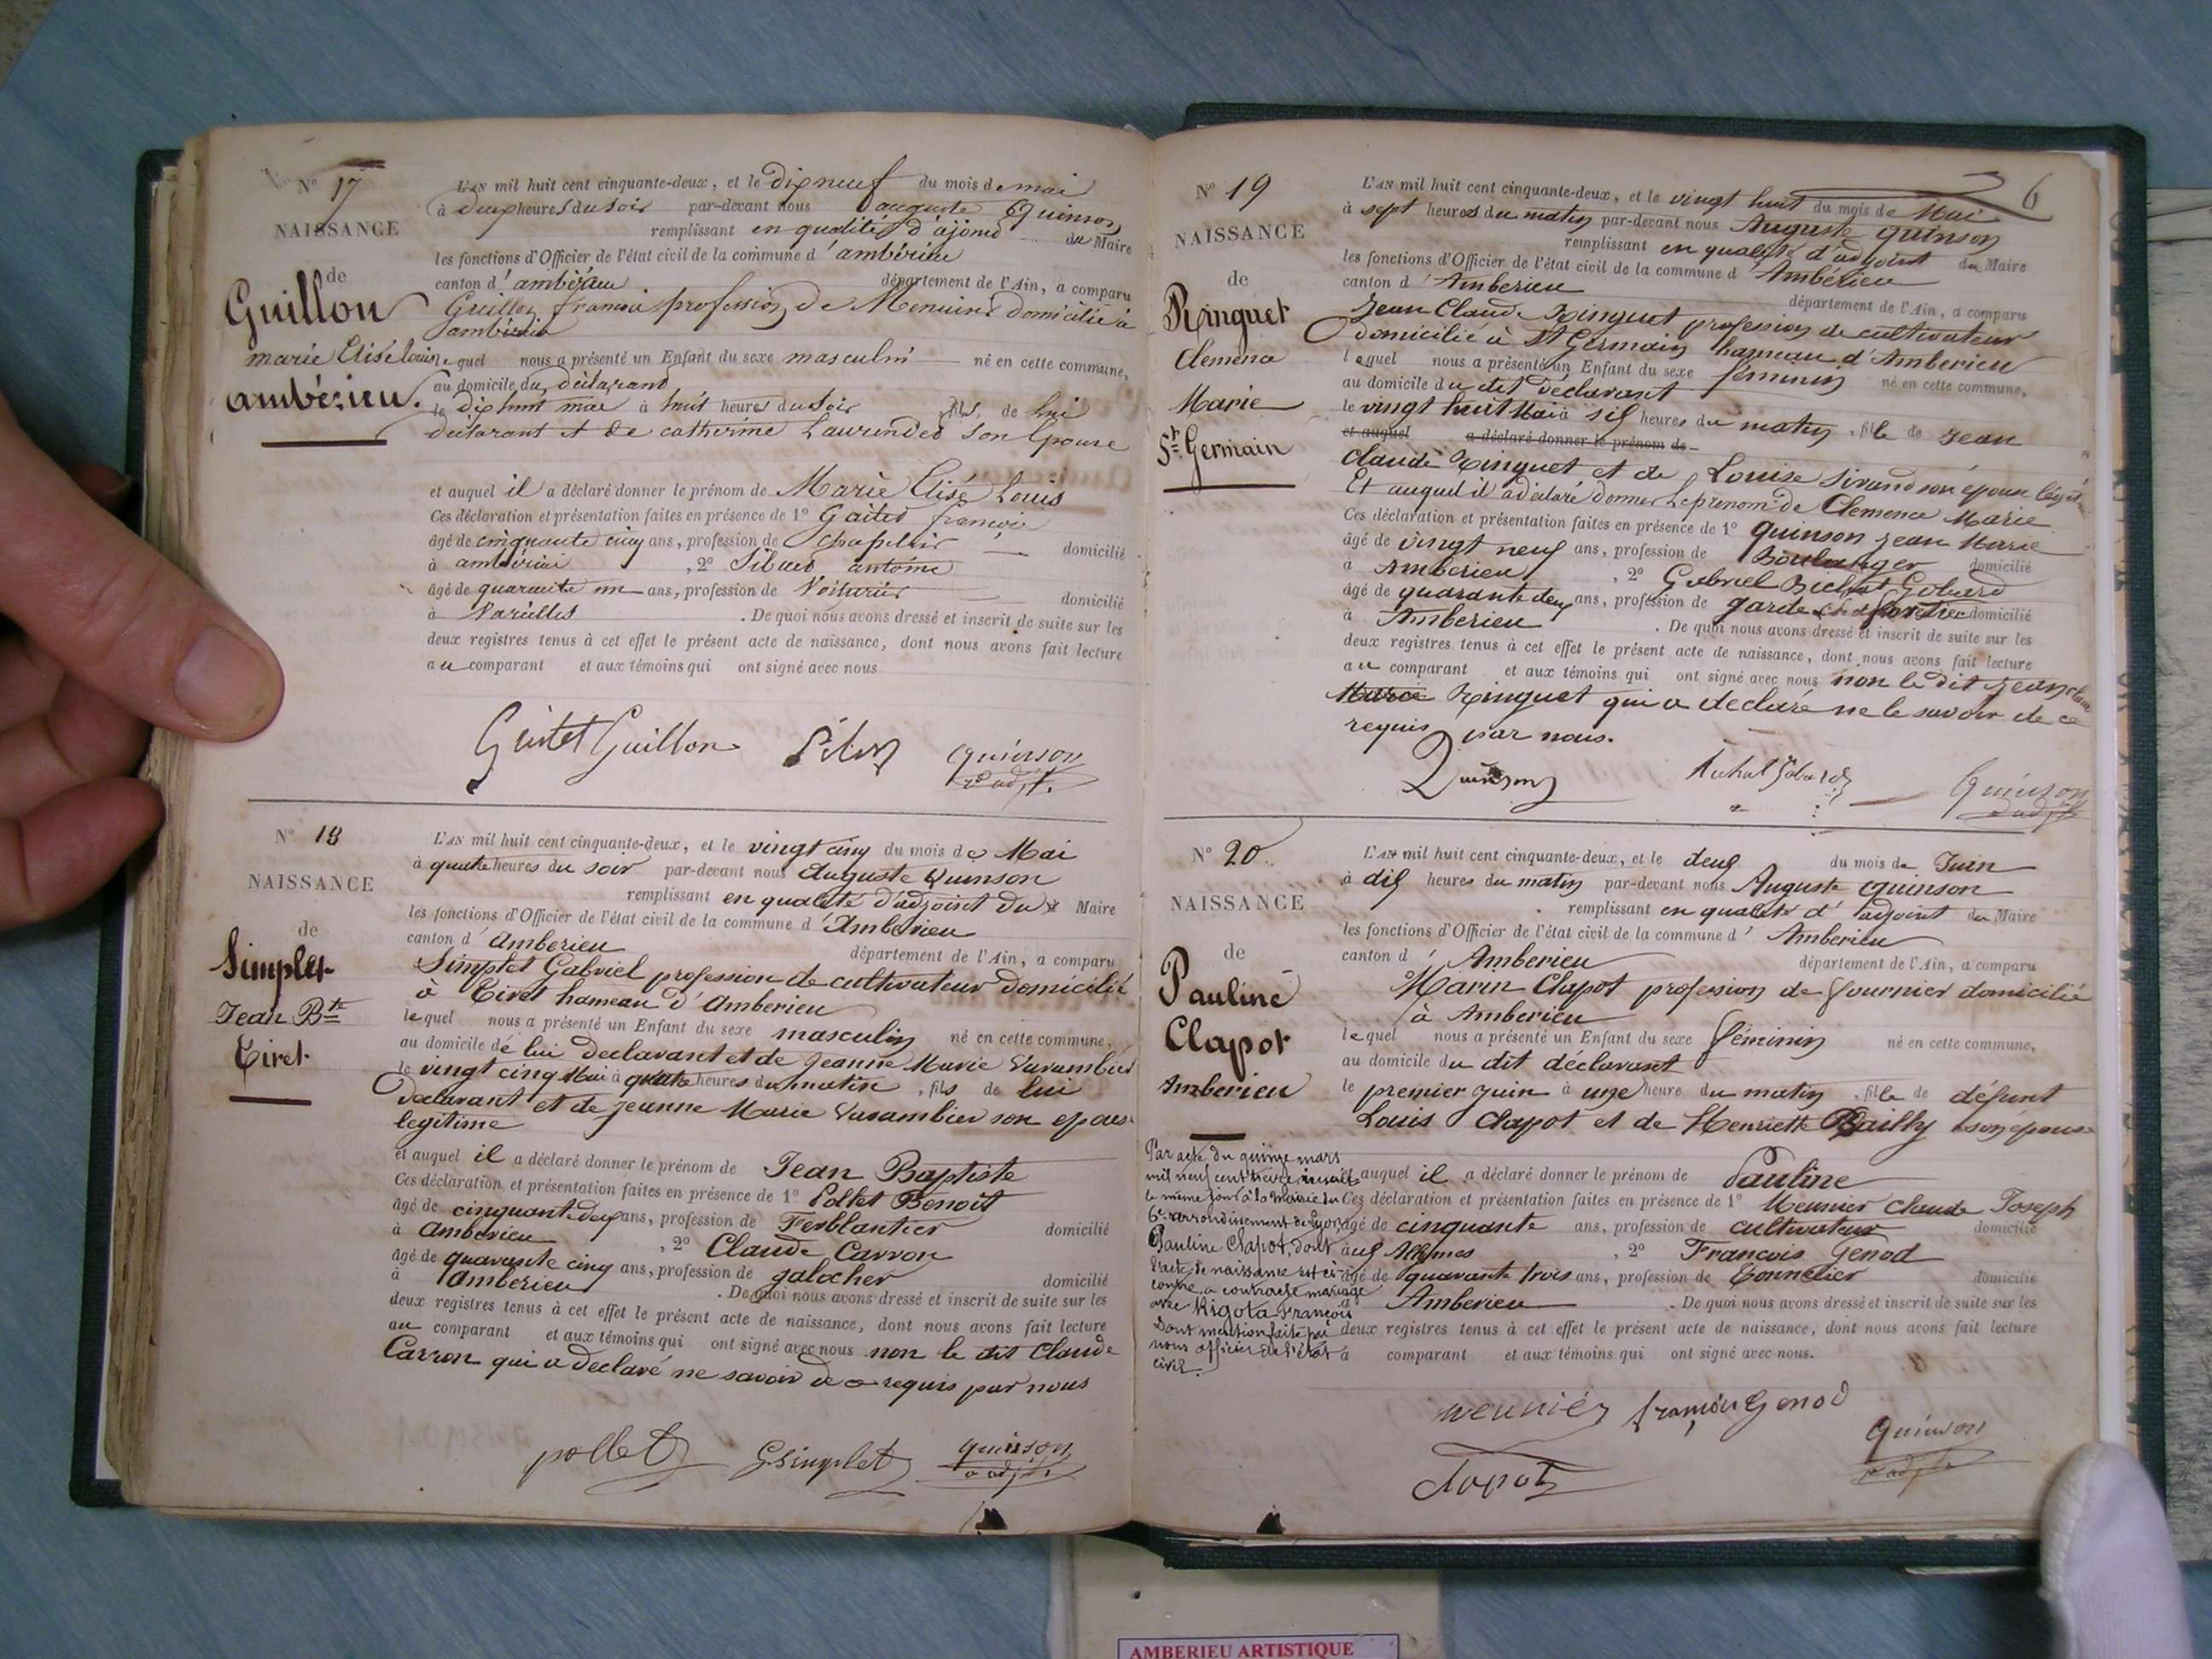 N° 17
NAISSANCE
de
Guillon
marie Elisé louis
ambérieu.
L'AN mil huit cent cinquante-deux, et le dix neuf du mois de mai
à deux heures du soir par-devant nous auguste Quinson
remplissant en qualité d'ajoint du Maire
les fonctions d'Officier de l'état civil de la commune d'ambérieu
canton d'ambérieu département de l'Ain, a comparu
Guillon françois profession de Menuisier domicilié à
ambérieu
lequel nous a présenté un Enfant du sexe masculin né en cette commune,
au domicile du déclarant
le dix huit mai à huit heures du soir fils de lui
déclarant et de catherine son Epouse
et auquel il a déclaré donner le prénom de Marie Elisé Louis
Ces déclaration et présentation faites en présence de 1° françois
âgé de cinquante cinq ans, profession de chapelier domicilié
à ambérieu , 2° antoine
âgé de quarante un ans, profession de Voiturier domicilié
à Vareilles . De quoi nous avons dressé et inscrit de suite sur les
deux registres tenus à cet effet le présent acte de naissance, dont nous avons fait lecture
au comparant et aux témoins qui ont signé avec nous
Guillon Quinson
adjt.
N° 18
NAISSANCE
de
Simplet
Jean Bte
Tiret
L'AN mil huit cent cinquante-deux, et le vingt cinq du mois de Mai
à quatre heures du soir par-devant nous Auguste Quinson
remplissant en qualité d'adjoint du Maire
les fonctions d'Officier de l'état civil de la commune d'Amberieu
canton d'Amberieu département de l'Ain, a comparu
Simplet Gabriel profession de cultivateur domicilié
à Tiret hameau d'Amberieu
lequel nous a présenté un Enfant du sexe masculin né en cette commune,
au domicile de lui declarant et de Jeanne Marie Varambier
le vingt cinq Mai à quatre heures du matin , fils de lui
Declarant et de Jeanne Marie Varambier son epouse
legitime
et auquel il a déclaré donner le prénom de Jean Baptiste
Ces déclaration et présentation faites en présence de 1° Pollet Benoit
âgé de cinquante deux ans, profession de Ferblantier domicilié
à Amberieu , 2° Claude Carron
âgé de quarante cinq ans, profession de galocher domicilié
à Amberieu . De quoi nous avons dressé et inscrit de suite sur les
deux registres tenus à cet effet le présent acte de naissance, dont nous avons fait lecture
au comparant et aux témoins qui ont signé avec nous non le dit Claude
Carron qui a declaré ne savoir de ce requis par nous
pollet GSimplet Quinson
adjt.
6
N° 19
NAISSANCE
de
Ringuet
Clemence
Marie
St. Germain
L'AN mil huit cent cinquante-deux, et le vingt huit du mois de Mai
à sept heures du matin par-devant nous Auguste Quinson
remplissant en qualité d'adjoint du Maire
les fonctions d'Officier de l'état civil de la commune d'Amberieu
canton d'Amberieu département de l'Ain, a comparu
Jean Claude Ringuet profession de cultivateur
domicilié à St Germain hameau d'Amberieu
lequel nous a présenté un Enfant du sexe féminin né en cette commune,
au domicile du dit déclarant
le vingt huit Mai à six heures du matin , fille de Jean
et auquel a déclaré donner le prénom de
Claude Ringuet et de Louise Sivand son épouse légit.
Et auquel il a déclaré donner le prénom de Clemence Marie
Ces déclaration et présentation faites en présence de 1° Quinson Jean Marie
âgé de vingt neuf ans, profession de Boulanger domicilié
à Amberieu , 2° Gabriel Bichat Gobard
âgé de quarante deux ans, profession de garde forestier domicilié
à Amberieu . De quoi nous avons dressé et inscrit de suite sur les
deux registres tenus à cet effet le présent acte de naissance, dont nous avons fait lecture
au comparant et aux témoins qui ont signé avec nous non le dit Jean Claude
Marie Ringuet qui a declaré ne le savoir de ce
requis par nous.
Quinson Quinson
adjt
N° 20
NAISSANCE
de
Pauline
Clapot
Amberieu
L'AN mil huit cent cinquante-deux, et le deux du mois de Juin
à dix heures du matin par-devant nous Auguste Quinson
remplissant en qualité d'adjoint du Maire
les fonctions d'Officier de l'état civil de la commune d'Amberieu
canton d'Amberieu département de l'Ain, a comparu
Marin Clapot profession de fournier domicilié
à Amberieu
lequel nous a présenté un Enfant du sexe féminin né en cette commune,
au domicile du dit déclarant
le premier Juin à une heure du matin , fille de défunt
Louis Clapot et de Henriette Bailly son épouse
et auquel il a déclaré donner le prénom de Pauline
Ces déclaration et présentation faites en présence de 1° Meunier Claude Joseph
âgé de cinquante ans, profession de cultivateur domicilié
aux Allymes , 2° Francois Genod
âgé de quarante trois ans, profession de Tonnelier domicilié
à Amberieu . De quoi nous avons dressé et inscrit de suite sur les
deux registres tenus à cet effet le présent acte de naissance, dont nous avons fait lecture
à comparant et aux témoins qui ont signé avec nous.
Par acte du quinze mars
mil neuf cent treize inscrit
le même jour à la Mairie du
6e arrondissement de Lyon
Pauline Clapot, dont
l'acte de naissance est ci
contre, a contracté mariage
avec Rigota François
Dont mention faite par
nous officier de l'état
civil.
meunier françois genod
Clapot
Quinson
adjt
AMBERIEU ARTISTIQUE